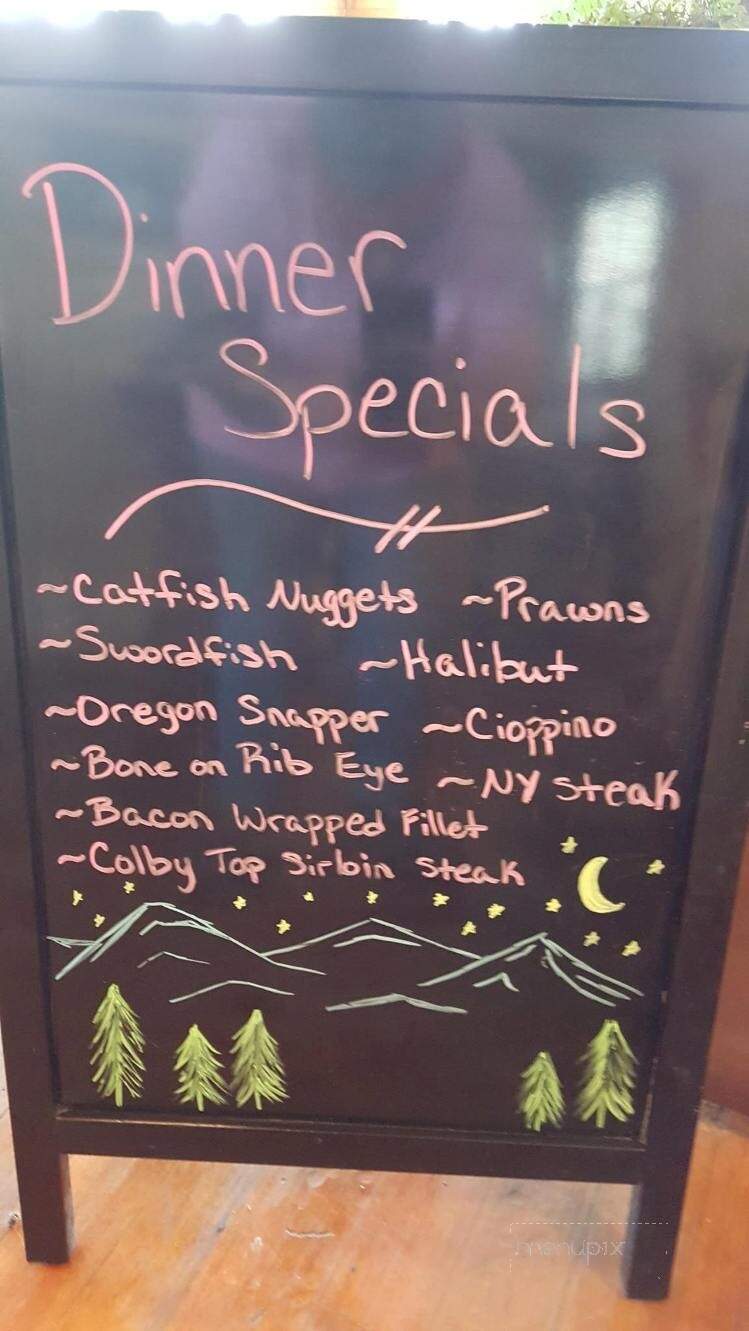 Dinner
Specials
~Catfish Nuggets ~Prawns
~Swordfish ~Halibut
~Oregon Snapper ~Cioppino
~Bone on Rib Eye ~NY Steak
~Bacon Wrapped Fillet
~Colby Top Sirloin Steak
menupix